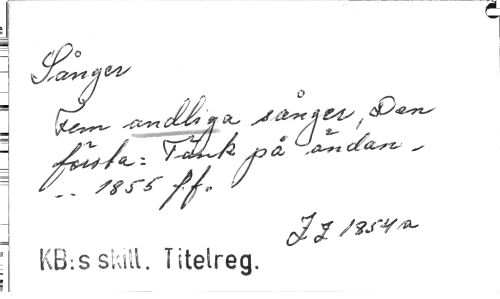 Sånger
Fem andliga sånger, Den
första: Tänk på ändan -
.. 1855 ff.
JJ 1854 a
KB:s skill. Titelreg.